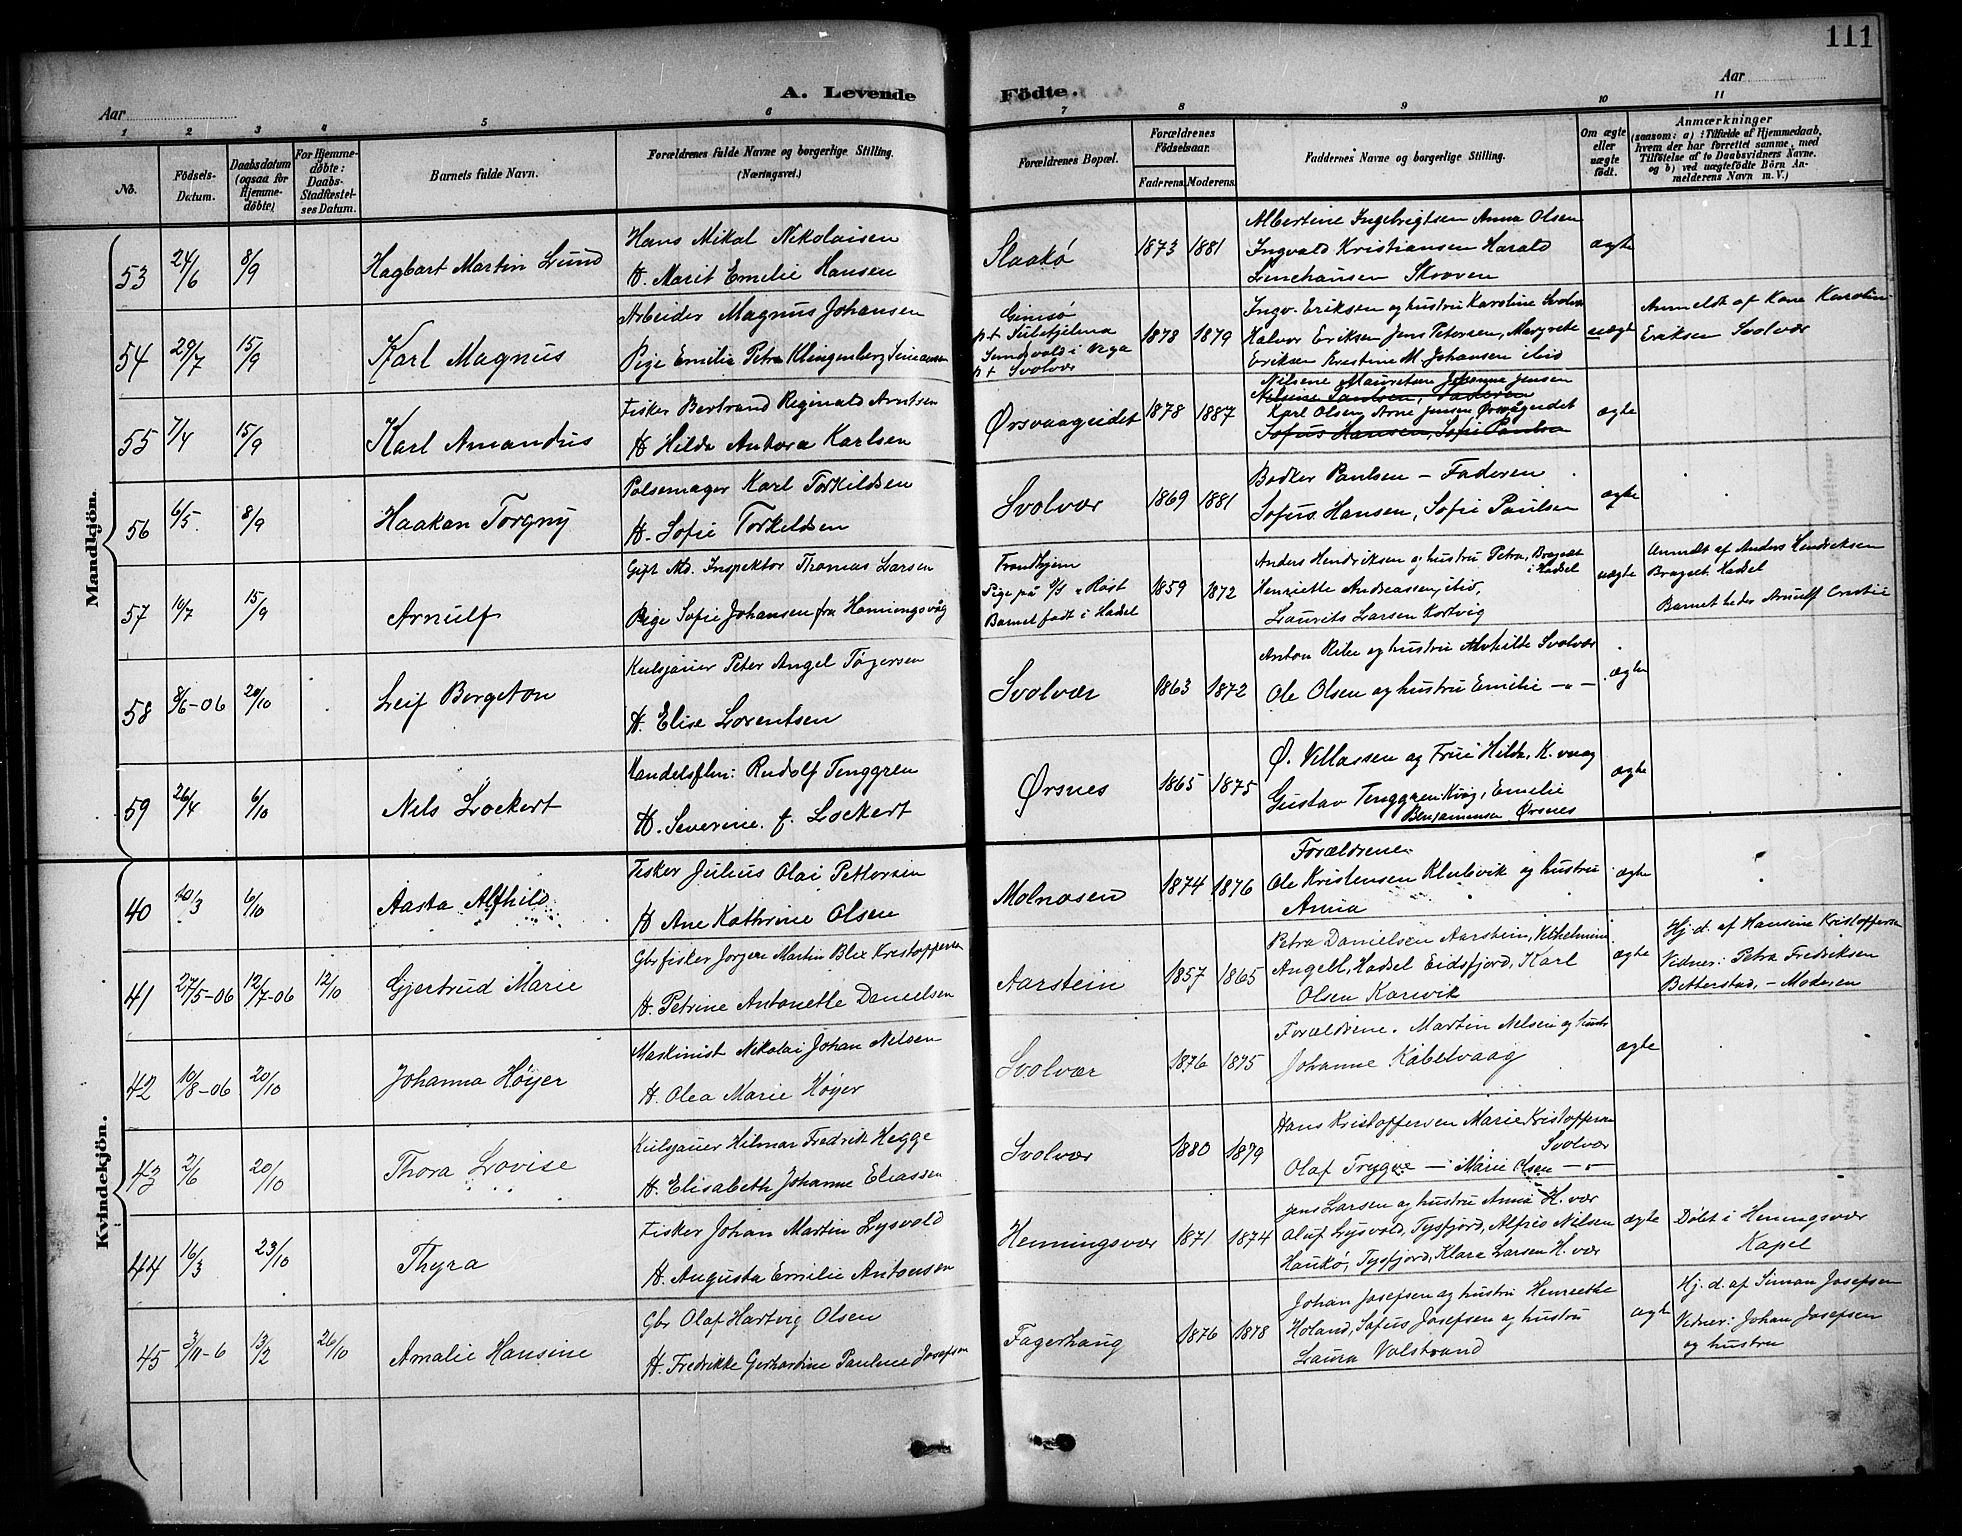 111
A. Levende Födte.
Aar
Aar
1 2 3 4 5 6 7 8 9 10 11
No.
Födsels-Datum.
Daabsdatum (ogsaa for Hjemme-döbte)
For Hjemme-döbte: Daabs-Stadfæstel-ses Datum.
Barnets fulde Navn.
Forældrenes fulde Navne og borgerlige Stilling.
(Næringsvei.)
Forældrenes Bopæl.
Forældrenes Födselsaar.
Faderens. Moderens.
Faddernes Navne og borgerlige Stilling.
Om ægte eller uægte födt.
Anmærkninger
(saasom: a) i Tilfælde af Hjemmedaab, hvem der har forrettet samme, med Tilföielse af to Daabsvidners Navne. og b) ved uægtefödte Börn An-melderens Navn m. V.)
Mandkjön.
53 24/6 8/9 Hagbart Martin Lund
Hans Mikal Nikolaisen
H. Marit Emelie Hansen
Slaakø 1873 1881
Albertine Ingebrigtsen Anna Olsen
Ingvald Kristiansen Harald
Linchausen Skroven
ægte
54 29/7 15/9 Karl Magnus
Arbeider Magnus Johansen
Pige Emilie Petra Klingenberg
Gimsø
pt Sulitjelma
Sundvold i Vega
pt Svolvær
1878 1879
Ingv. Eriksen og hustru Karoline Svolvær
Halvor Eriksen Jens Petersen, Margrete
Eriksen Kristine M. Johansen ibid
uægte
Anmeldt af Kone Karolin
Eriksen Svolvær
55 7/4 15/9 Karl Amandus
Fisker Bertrand Reginald Arntsen
H Hilda Antora Karlsen
Ørsvaageidet 1878 1887
Nilsine Mauretsen Johanna Jensen
Karl Olsen Arne Jensen Ørsvågeidet
Sofus Hansen, Sofie Paulsen
ægte
56 6/5 8/9 Haakon Torgny
Pølsemager Karl Torkildsen
H. Sofie Torkildsen
Svolvær 1869 1881
Bødker Paulsen - Faderen
Sofus Hansen, Sofie Paulsen
ægte
57 10/7 15/9 Arnulf
Gift Md. Inspektør Thomas Larsen
Pige Sofie Johansen fra Honningsvåg
Trondhjem
Pige på Røst
Barnet født i Hadsel
1859 1872
Anders Hendriksen og hustru Petra, Bragnæs i Hadsel
Henriette Andreassen, ibid,
Laurits Larsen Kortvig
uægte
Anmeldt af Anders Hendriksen
Bragnes, Hadsel
Barnet heder Arnulf
58 8/6-06 20/10 Leif Bergeton
Kulsjauer Peter Angel Tøgersen
H. Elise Lorentsen
Svolvær 1863 1872
Anton Ribe og hustru Mathilde Svolvær
Ole Olsen og hustru Emilie -"-
ægte
59 26/4 6/10 Nels Lockert
Handelsflm: Rudolf Tenggren
H. Severine f. Lockert
Ørsnes 1865 1875
Ø. Villassen og Frue Hilda, K.vaag
Gustav Tenggren Kvåg, Emelie
Benjaminsen Ørsnes
ægte
Kvindekjön.
40 10/3 6/10 Aasta Alfhild
Fisker Julius Olai Pettersen
H Ane Kathrine Olsen
Molnosen 1874 1876
Forældrene
Ole Kristensen Klubvik og hustru
Anna
ægte
41 27/5-06 12/7-06 12/10 Gjertrud Marie
Gbr fisker Jørgen Martin Blix Kristoffersen
H. Petrine Antonette Danielsen
Aarstein 1857 1865
Petra Danielsen Aarstein, Vilhelmine
Angell, Hadsel Eidsfjord, Karl
Olsen Karivik
ægte
Hj. d. af Hansine Kristoffersen
Vidner: Petra Fredriksen
Bitterstad, - Moderen
42 10/8-06 20/10 Johanna Høyer
Maskinist Nikolai Johan Nelsen
H. Olea Marie Høyer
Svolvær 1876 1875
Forældrene. Martin Nelsen og hustr
Johanne Kabelvaag
ægte
43 2/6 20/10 Thora Lovise
Kulsjauer Hilmar Fredrik Hegge
H. Elisabeth Johanne Eliassen
Svolvær 1880 1879
Hans Kristoffersen Marie Kristoffersen
Svolvær
Olaf Trygve -"- Marie Olsen -"-
44 16/3 23/10 Thyra
Fisker Johan Martin Lysvold
H. Augusta Emilie Antonsen
Henningsvær 1871 1874
Jens Larsen og hustru Anna H.vær
Oluf Lysvold, Tysfjord, Alfrid Nilsen
Haukø, Tysfjord, Klara Larsen H.vær
ægte
Døbt i Henningsvær
Kapel
45 3/11-6 13/2 26/10 Amalie Hansine
Gbr Olaf Hartvig Olsen
H. Fredrikke Gerhardine Pauline Josefsen
Fagerhaug 1876 1878
Johan Josefsen og hustru Henriette
Holand, Sofus Josefsen og hustru
Laura Valstrand
ægte
Hj. d. af Simon Josefsen
Vidner: Johan Josefsen
og hustru